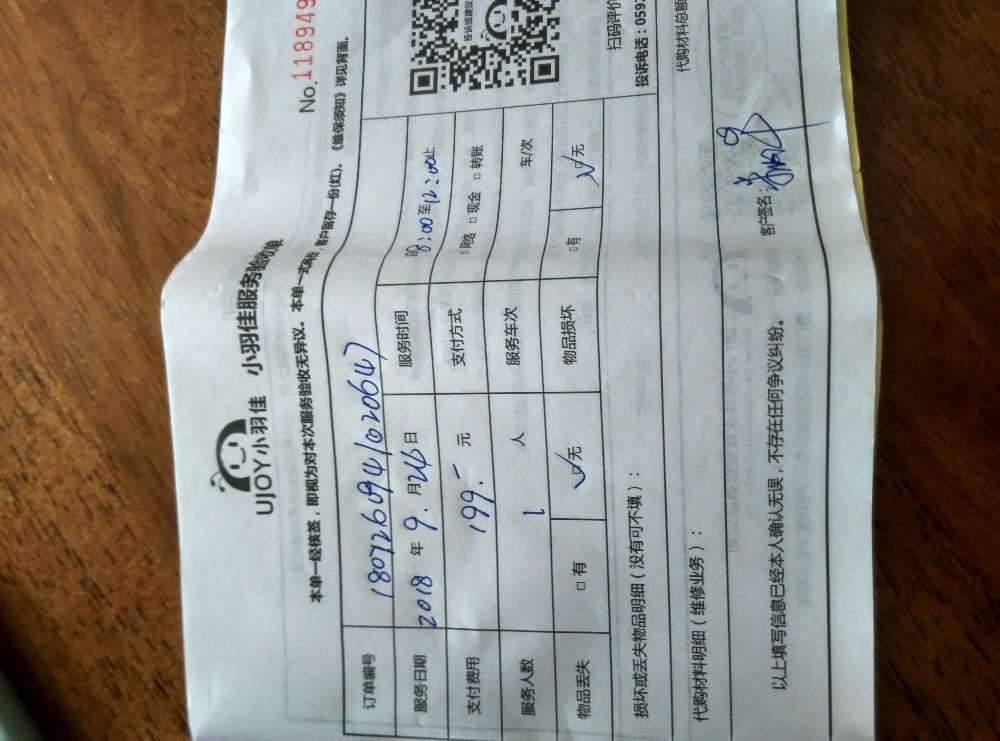 No.118949
UJOY小羽佳 小羽佳服务验收单
本单一经核签，即视为对本次服务验收无异议。本单一式两份，客户留存一份(红)。《维保须知》详见背面。
订单编号 1807260941020647
投诉或建议
服务日期 2018年9.月26日 服务时间 8:00至12:00止
支付费用 199.- 元 支付方式 □网络 □现金 □转账
服务人数 1 人 服务车次 车/次
物品丢失 □有 ☑无 物品损坏 □有 ☑无
扫码评价
投诉电话：0592
损坏或丢失物品明细（没有可不填）：
代购材料明细（维修业务）： 代购材料总额
以上填写信息已经本人确认无误，不存在任何争议纠纷。 客户签名：